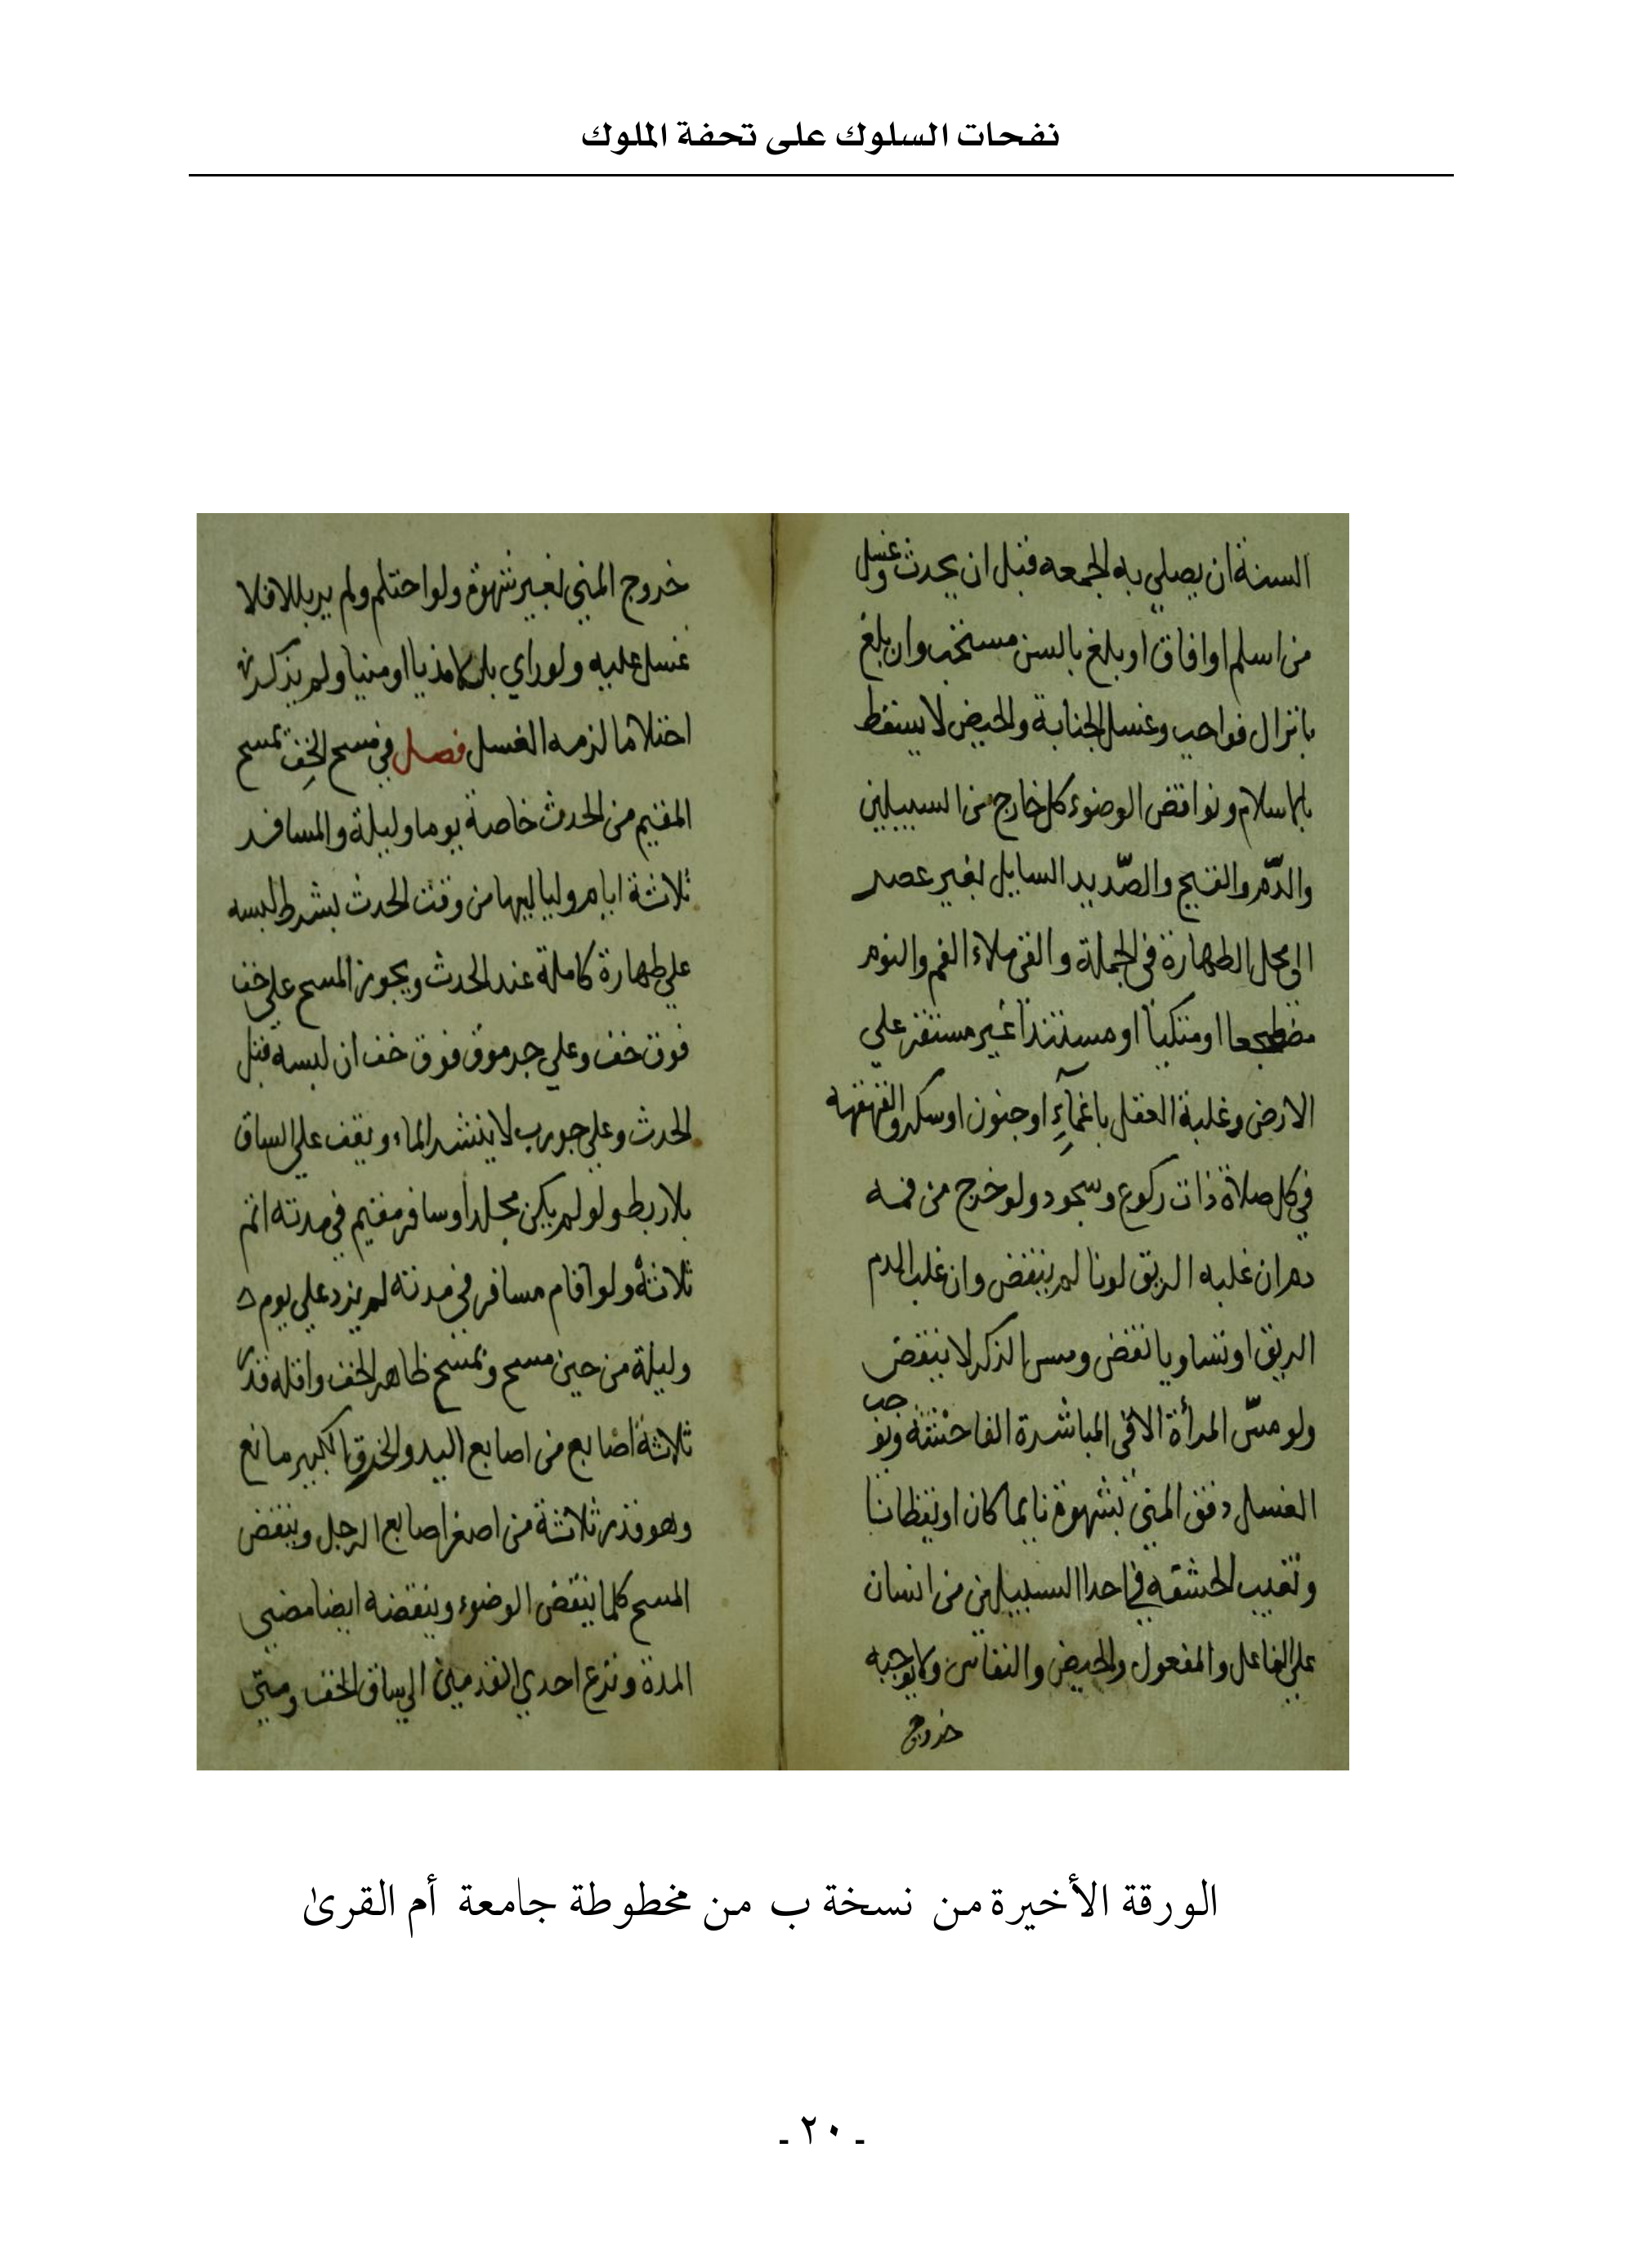 نفحات السلوك على تحفة الملوك
السنة ان يصلي به الجمعه قبل ان يحدث وغسل
من اسلم او افاق او بلغ بالسن مستحب وان بلغ
بانزال فواجب وغسل الجنابة والحيض لا يسقط
بالاسلام ونواقض الوضوء كل خارج من السبيلين
والدّم والقيح والصّديد السايل لغير عصر
الى محل الطهارة في الجملة والقي ملاء الفم والنوم
مضطجعا او متكيا او مستندا غير مستقر علي
الارض وغلبة العقل باغمآءٍ او جنون او سكر والقهقهه
في كل صلاة ذات ركوع وسجود ولو خرج من فمه
دم ان غلبه الريق لونا لم ينقض وان غلب الدم
الريق او تساويا نقض ومس الذكر لا ينقض
ولو مسّ المرأة الا في المباشرة الفاحشة ويوجب
الغسل دفق المني بشهوة نايما كان او يقظانا
وتغيب الحشفه في احدا السبيلين من انسان
علي الفاعل والمفعول والحيض والنفاس ولا يوجبه
خروج
خروج المني لغير شهوة ولو احتلم ولم ير بللا فلا
غسل عليه ولو راي بللا مذيا او منيا ولم يذكر
احتلاما لزمه الغسل فصل في مسح الخف يمسح
المقيم من الحدث خاصة يوما وليلة والمسافر
ثلاثة ايام ولياليها من وقت الحدث بشرط لبسه
علي طهارة كاملة عند الحدث ويجوز المسح علي خف
فوق خف وعلي جرموق فوق خف ان لبسه قبل
الحدث وعلي جورب لا ينشد الماء ويقف علي الساق
بلا ربط ولو لم يكن مجلدا وسافر مقيم في مدته اتم
ثلاثة ولو اقام مسافر في مدته لم يزد علي يوم
وليلة من حين مسح ويمسح ظاهر الخف واقله قدر
ثلاثة اصابع من اصابع اليد والخرق الكبير مانع
وهو قدر ثلاثة من اصغر اصابع الرجل وينقض
المسح كلما ينقض الوضوء وينقضه ايضا مضي
المدة ونزع احدي القدمين الي ساق الخف ومتي
الورقة الأخيرة من نسخة ب من مخطوطة جامعة أم القرىٰ
ـ ٢٠ ـ